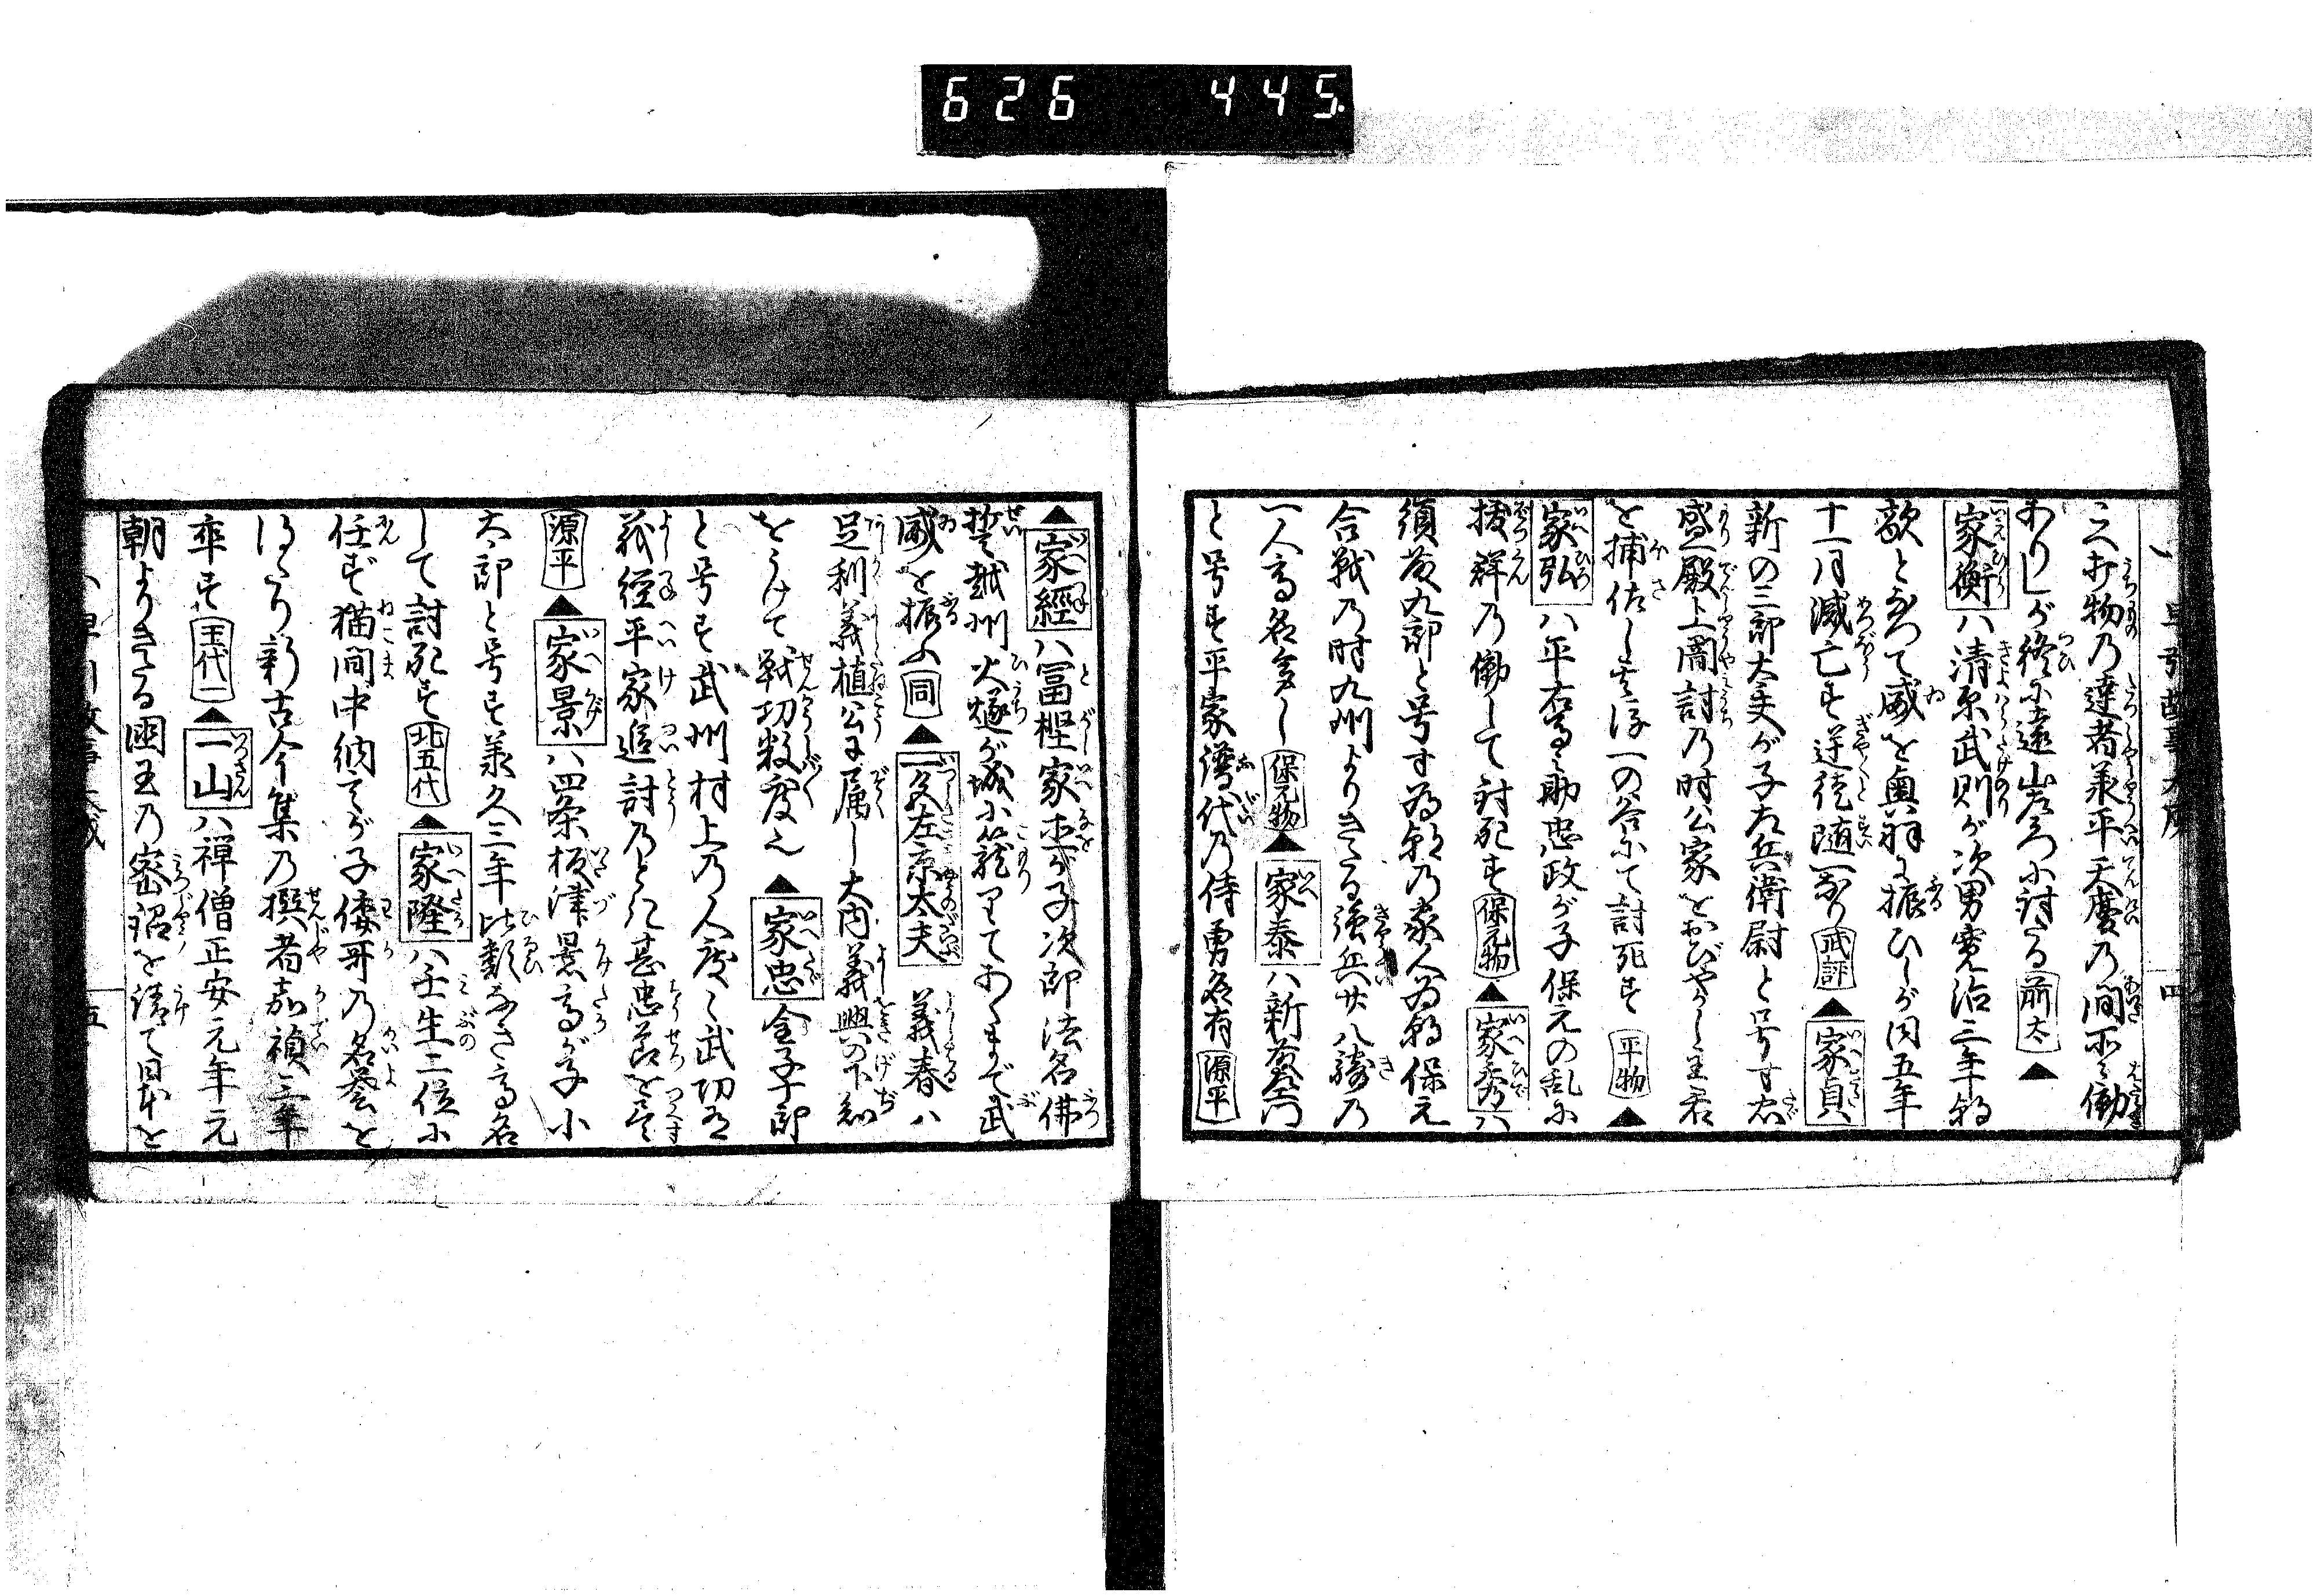 626 445
え打物乃達者承平天慶乃間所々働
ありしが終に遠山岩門に討る 前太 ▲
家衡ハ清原武則が次男寛治二年朝
敵となつて威を奥羽に振ひしが同五年
十一月滅亡す逆徒随一なり 武評 ▲家貞
新の三郎大夫が子左兵衛尉と号す忠
盛殿上闇討乃時公家をおびやかし主君
を捕佐し其後一の谷にて討死す 平物 ▲
家弘ハ平右馬助忠政が子保元の乱に
抜群乃働して討死す 保元物 ▲家秀ハ
須藤九郎と号す為朝乃家人為朝保元
合戦乃時九州よりきたる強兵廿八騎乃
一人高名多し 保元物 ▲家泰ハ新藤左衛門
と号す平家譜代乃侍勇名有 源平
▲家經ハ冨樫家直が子次郎法名佛
誓越州火燧が城に籠りてあくまで武
威を振ふ 同 ▲一色左京太夫義春ハ
足利義植公に属し大内義興の下知
をうけて戦功数度之 ▲家忠金子十郎
と号す武州村上乃人度々武功有
義経平家追討乃とき甚忠節を尽す
源平 ▲家景ハ四条板津景高が子小
太郎と号す承久三年比類なき高名
して討死す 北五代 ▲家隆ハ壬生二位に
任ず猫間中納言が子倭哥乃名誉を
得たり新古今集乃撰者嘉禎三年
卒す 王代一 ▲一山ハ禅僧正安元年元
朝よりきたる國王乃密詔を請て日本を